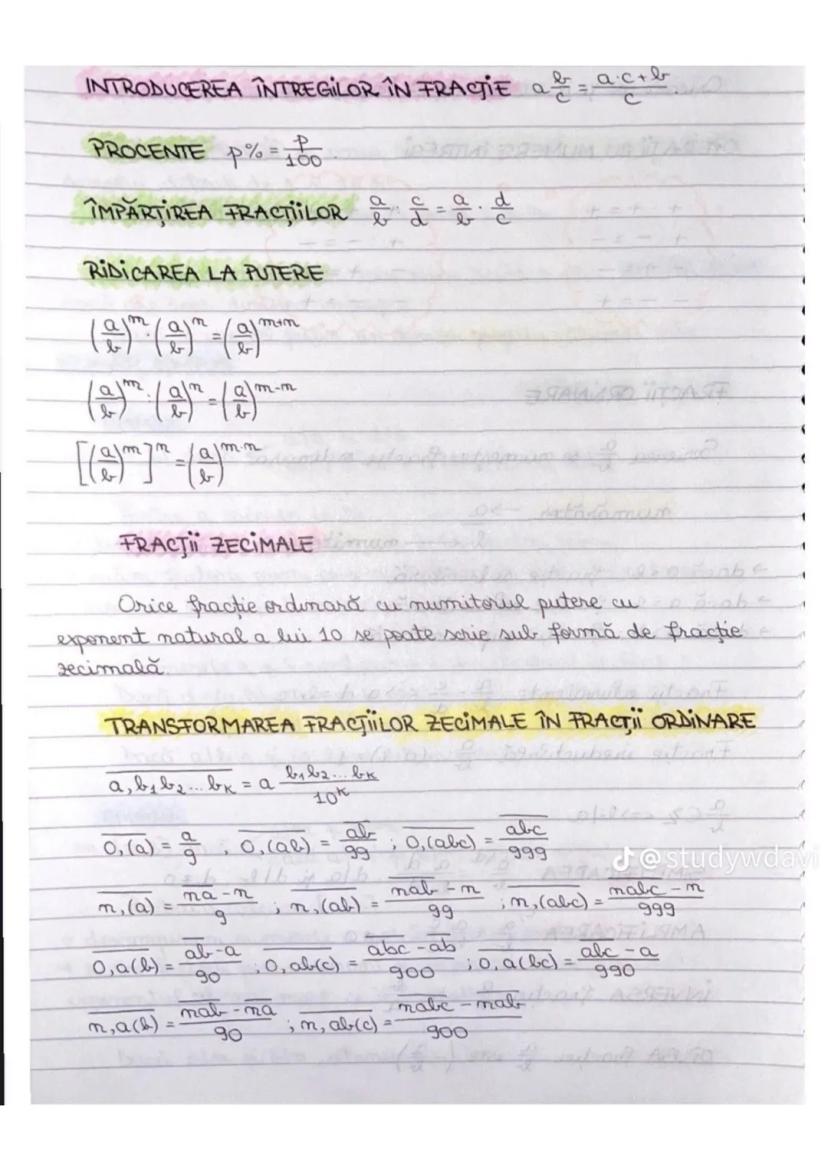 INTRODUCEREA ÎNTREGILOR ÎN FRACȚIE a b/c = a·c+b/c.
PROCENTE p% = p/100.
ÎMPĂRȚIREA FRACȚIILOR a/b : c/d = a/b · d/c
RIDICAREA LA PUTERE
(a/b)^m · (a/b)^n = (a/b)^m+n
(a/b)^m : (a/b)^n = (a/b)^m-n
[(a/b)^m]^n = (a/b)^m·n
FRACȚII ZECIMALE
Orice fracție ordinară cu numitorul putere cu
exponent natural a lui 10 se poate scrie sub formă de fracție
zecimală.
TRANSFORMAREA FRACȚIILOR ZECIMALE ÎN FRACȚII ORDINARE
a,b₁b₂...bₖ = a b₁b₂...bₖ/10^k
0,(a) = a/9 ; 0,(ab) = ab/99 ; 0,(abc) = abc/999
@studywdavi
n,(a) = na-n/9 ; n,(ab) = nab-n/99 ; n,(abc) = nabc-n/999
0,a(b) = ab-a/90 ; 0,ab(c) = abc-ab/900 ; 0,a(bc) = abc-a/990
n,a(b) = nab-na/90 ; n,ab(c) = nabc-nab/900